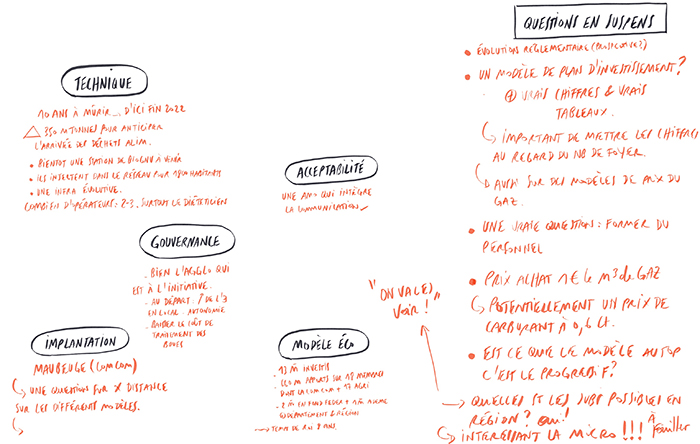 TECHNIQUE
10 ANS À MÛRIR... D'ICI FIN 2022
350 M TONNES POUR ANTICIPER
L'ARRIVÉE DES DÉCHETS ALIM.
• BIENTOT UNE STATION DE BIOGNV À VENIR
• ILS INJECTENT DANS LE RÉSEAU POUR HABITANTS
• UNE INFRA ÉVOLUTIVE.
COMBIEN D'OPÉRATEURS : 2-3. SURTOUT LE DIÉTÉTICIEN
ACCEPTABILITÉ
UNE AMO QUI INTÈGRE
LA COMMUNICATION
GOUVERNANCE
- BIEN L'AGGLO QUI
EST À L'INITIATIVE.
- AU DÉPART : DE L'
EN LOCAL. AUTONOMIE
- BAISSER LE COÛT DE
TRAITEMENT DES
BOUES
IMPLANTATION
MAUBEUGE (COM COM)
UNE QUESTION SUR X DISTANCE
SUR LES DIFFÉRENTS MODÈLES.
MODÈLE ÉCO
- 13 M INVESTIS
APPORTS SUR 18 MEMBRES
DONT LA COM COM + 17 AGRI
- 2 M EN FOND FEDER + ADEME
DÉPARTEMENT & RÉGION
→ TEMPS DE ROI 8 ANS.
"ON VA LES
VOIR !"
QUESTIONS EN SUSPENS
• ÉVOLUTION RÉGLEMENTAIRE
• UN MODÈLE DE PLAN D'INVESTISSEMENT?
+ VRAIS CHIFFRES & VRAIS
TABLEAUX.
IMPORTANT DE METTRE LES CHIFFRES
AU REGARD DU NB DE FOYER.
AUSSI SUR DES MODÈLES DE PRIX DU
GAZ.
• UNE VRAIE QUESTION : FORMER DU
PERSONNEL
• PRIX ACHAT 1€ LE M³ DE GAZ
POTENTIELLEMENT UN PRIX DE
CARBURANT À 0,6 LT.
• EST CE QUE LE MODÈLE AU TOP
C'EST LE PROGRESSIF?
QUELLES ST LES SUBV POSSIBLES EN
RÉGION? OUI!
INTERESSANT LA MICRO !!! À fouiller